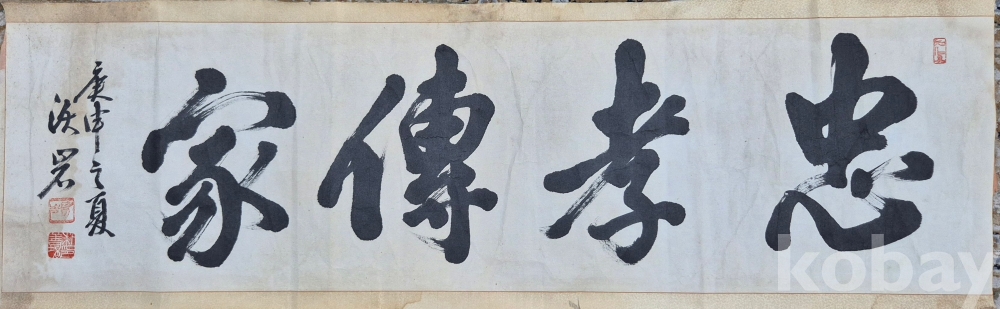 忠孝傳家
庚申之夏
岩
kobay